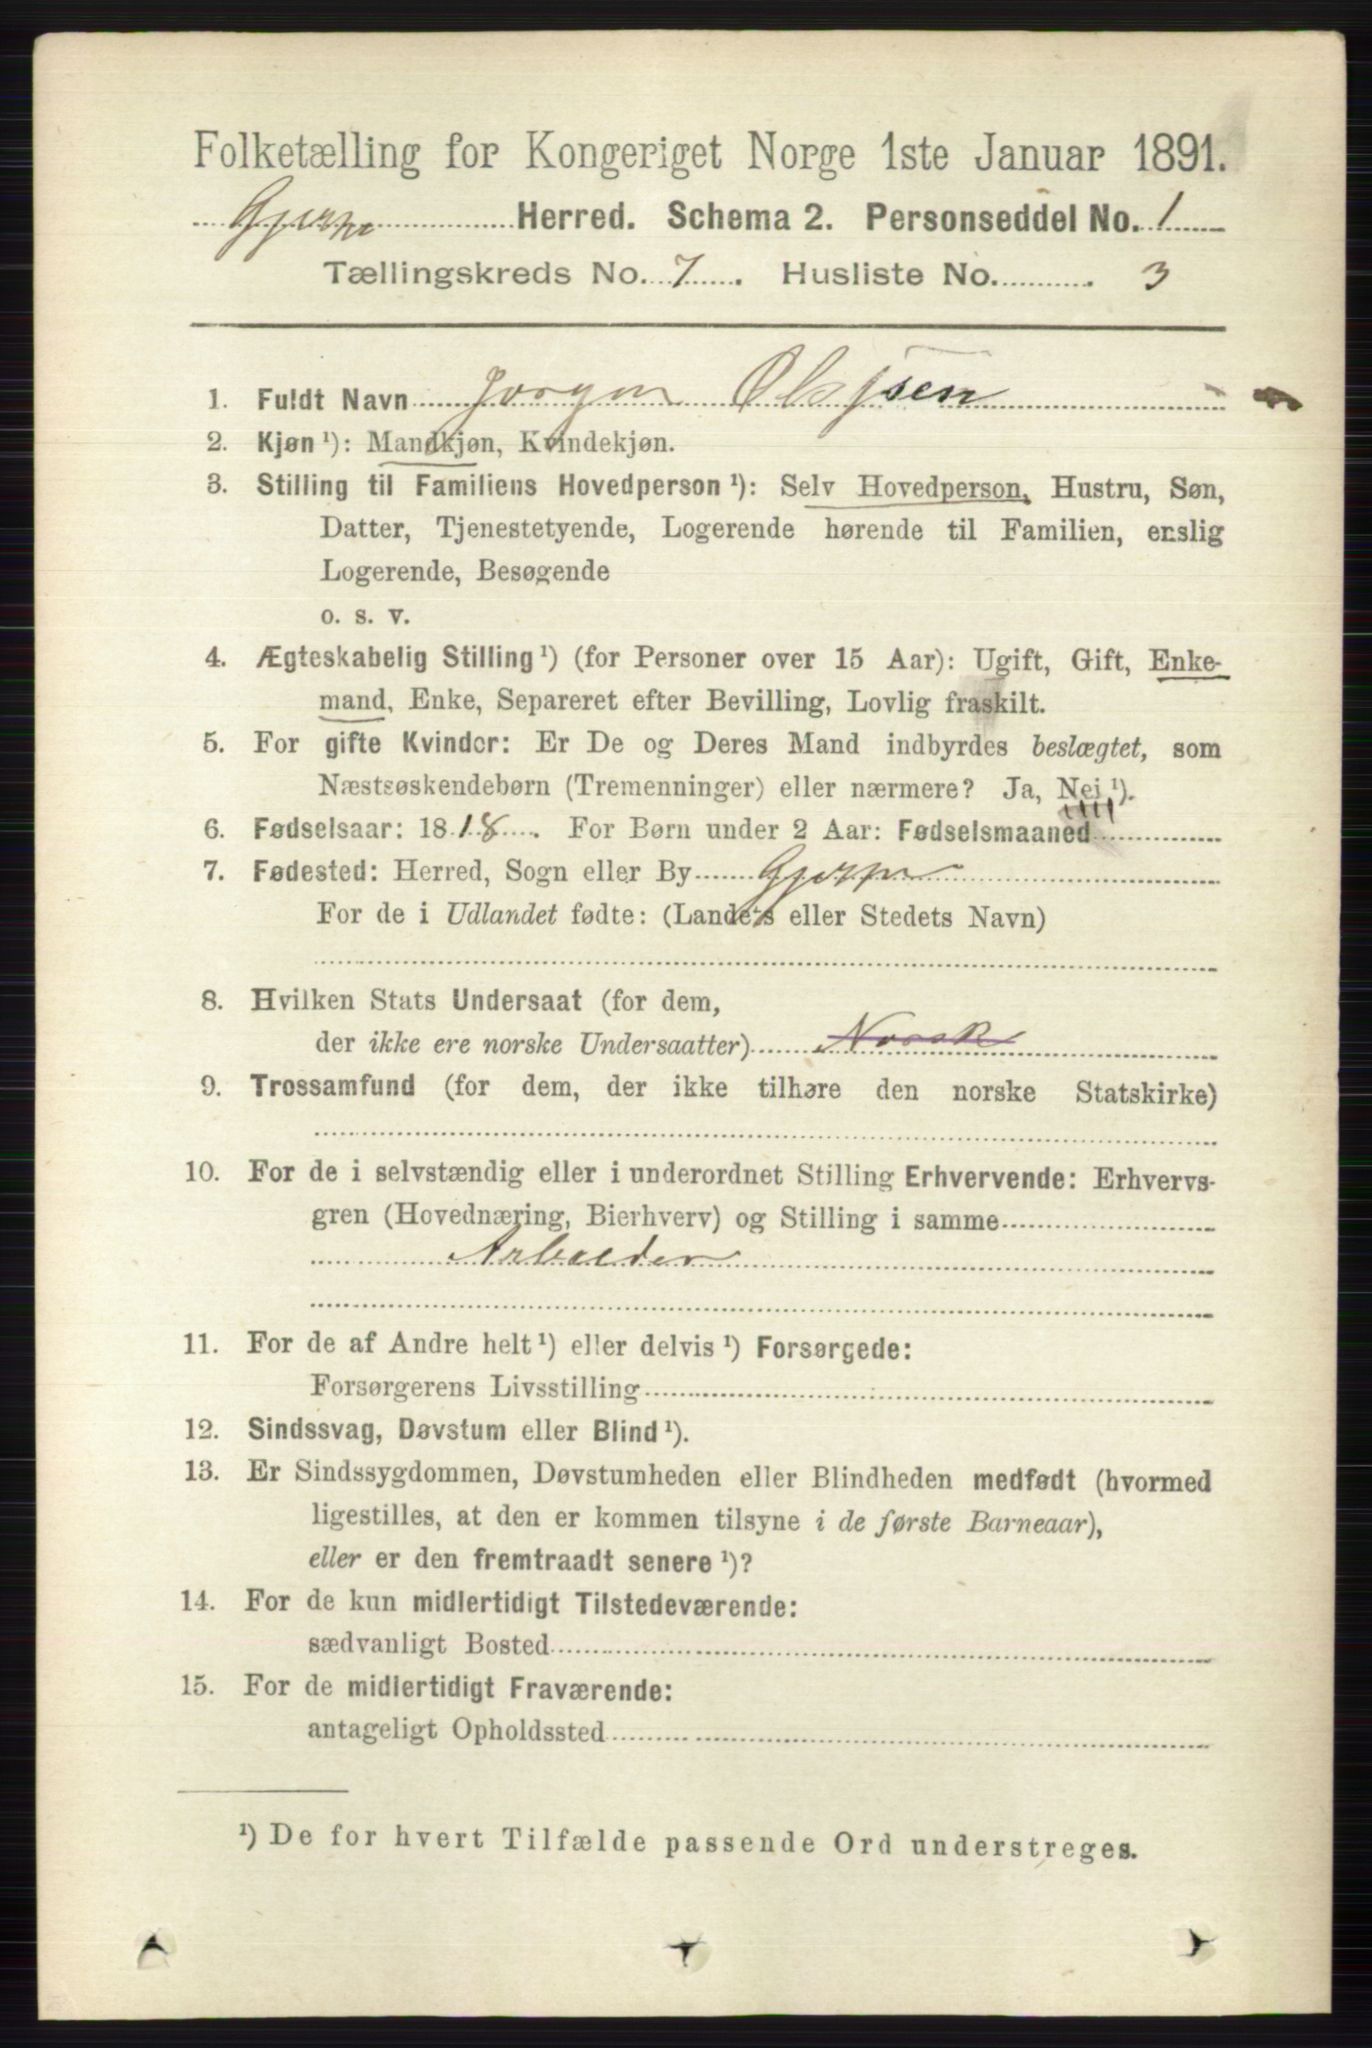 Folketælling for Kongeriget Norge 1ste Januar 1891.
Gjerpen Herred. Schema 2. Personseddel No. 1
Tællingskreds No. 7. Husliste No. 3
1. Fuldt Navn Jørgen Olssen
2. Kjøn ¹): Mandkjøn, Kvindekjøn.
3. Stilling til Familiens Hovedperson ¹): Selv Hovedperson, Hustru, Søn,
Datter, Tjenestetyende, Logerende hørende til Familien, enslig
Logerende, Besøgende
o. s. v.
4. Ægteskabelig Stilling ¹) (for Personer over 15 Aar): Ugift, Gift, Enke-
mand, Enke, Separeret efter Bevilling, Lovlig fraskilt.
5. For gifte Kvinder: Er De og Deres Mand indbyrdes beslægtet, som
Næstsøskendebørn (Tremenninger) eller nærmere? Ja, Nei ¹).
6. Fødselsaar: 1818. For Børn under 2 Aar: Fødselsmaaned
7. Fødested: Herred, Sogn eller By Gjerpen
For de i Udlandet fødte: (Landets eller Stedets Navn)
8. Hvilken Stats Undersaat (for dem,
der ikke ere norske Undersaatter) Norsk
9. Trossamfund (for dem, der ikke tilhøre den norske Statskirke)
10. For de i selvstændig eller i underordnet Stilling Erhvervende: Erhvervs-
gren (Hovednæring, Bierhverv) og Stilling i samme
Arbeider
11. For de af Andre helt ¹) eller delvis ¹) Forsørgede:
Forsørgerens Livsstilling
12. Sindssvag, Døvstum eller Blind ¹).
13. Er Sindssygdommen, Døvstumheden eller Blindheden medfødt (hvormed
ligestilles, at den er kommen tilsyne i de første Barneaar),
eller er den fremtraadt senere ¹)?
14. For de kun midlertidigt Tilstedeværende:
sædvanligt Bosted
15. For de midlertidigt Fraværende:
antageligt Opholdssted
¹) De for hvert Tilfælde passende Ord understreges.